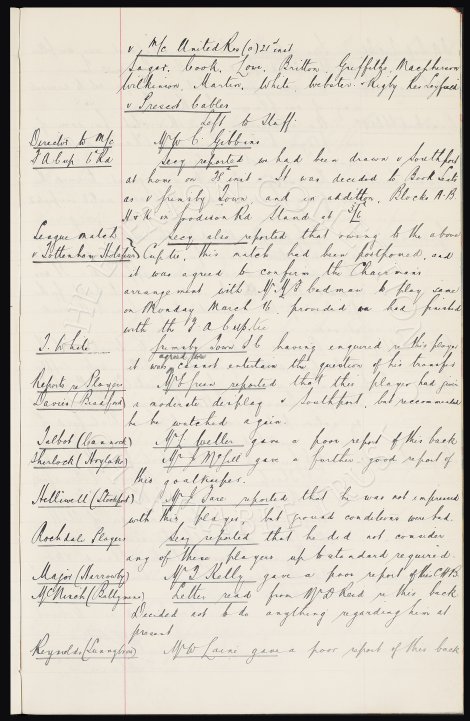 v M/c United Res (a) 21st inst
Sagar, Cook, Low, Britton, Griffiths, Macpherson
Wilkinson, Martin, White, Webster, & Rigby Res Leyfield
v Prescot Cables
Left to Staff.
Director to M/c Mr W C Gibbins
F A Cup 6th Rd Secy reported we had been drawn v Southport
at home on 28th inst - It was decided to Book Seats
as v Grimsby Town and in addition, Blocks A.B.
H & K in Goodison Rd Stand at 3/6
League match Secy also reported that owing to the above
v Tottenham Hotspurs Cup tie, this match had been postponed, and
it was agreed to confirm the Chairmans
arrangement with Mr Cadman to play same
on Monday March 16, provided we had finished
with the F A Cup tie
T. White Grimsby Town F C having enquired re this player
it was agreed we cannot entertain the question of his transfer
Reports re Players Mr Green reported that this player had given
Davies (Bradford) a moderate display v Southport, but recommended
he be watched again.
Talbot (Cannock) Mr L Weller gave a poor report of this back
Sherlock (Hoylake) Mr J McGill gave a further good report of
this goalkeeper.
Helliwell (Stockport) Mr J Fare reported that he was not impressed
with this player, but ground conditions were bad.
Rochdale Players Secy reported that he did not consider
any of these players up to standard required.
Major (Harrowby) Mr T. Kelly gave a poor report of this C.H.B.
(Ballymena) Letter read from Mr D Reid re this back
Decided not to do anything regarding him at
present
Reynolds Mr W gave a poor report of this back